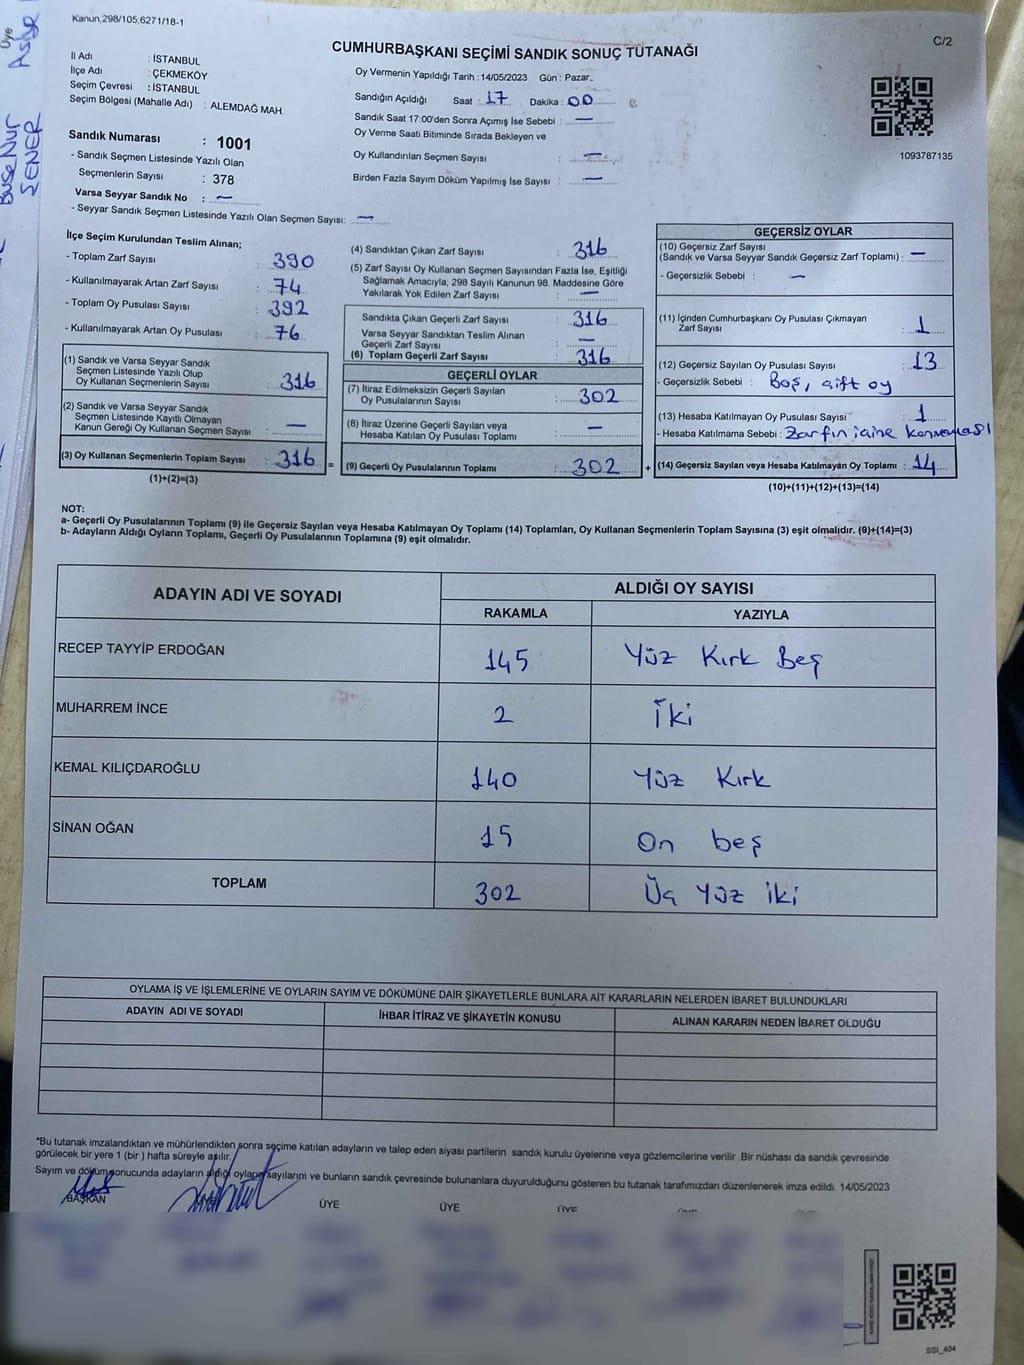 Kanun,298/105;6271/18-1
C/2
Üye
Buse Nur
ŞENER
CUMHURBAŞKANI SEÇİMİ SANDIK SONUÇ TUTANAĞI
İl Adı : İSTANBUL
İlçe Adı : ÇEKMEKÖY
Seçim Çevresi : İSTANBUL
Seçim Bölgesi (Mahalle Adı) : ALEMDAĞ MAH.
Sandık Numarası : 1001
- Sandık Seçmen Listesinde Yazılı Olan
Seçmenlerin Sayısı : 378
Varsa Seyyar Sandık No : —
- Seyyar Sandık Seçmen Listesinde Yazılı Olan Seçmen Sayısı: —
Oy Vermenin Yapıldığı Tarih : 14/05/2023 Gün : Pazar
Sandığın Açıldığı Saat : 17 Dakika : 00
Sandık Saat 17:00'den Sonra Açımış İse Sebebi : —
Oy Verme Saati Bitiminde Sırada Bekleyen ve
Oy Kullandırılan Seçmen Sayısı : —
Birden Fazla Sayım Döküm Yapılmış İse Sayısı : —
1093787135
İlçe Seçim Kurulundan Teslim Alınan;
- Toplam Zarf Sayısı : 390
- Kullanılmayarak Artan Zarf Sayısı : 74
- Toplam Oy Pusulası Sayısı : 392
- Kullanılmayarak Artan Oy Pusulası : 76
(1) Sandık ve Varsa Seyyar Sandık
Seçmen Listesinde Yazılı Olup
Oy Kullanan Seçmenlerin Sayısı : 316
(2) Sandık ve Varsa Seyyar Sandık
Seçmen Listesinde Kayıtlı Olmayan
Kanun Gereği Oy Kullanan Seçmen Sayısı : —
(3) Oy Kullanan Seçmenlerin Toplam Sayısı : 316 =
(1)+(2)=(3)
(4) Sandıktan Çıkan Zarf Sayısı : 316
(5) Zarf Sayısı Oy Kullanan Seçmen Sayısından Fazla İse, Eşitliği
Sağlamak Amacıyla; 298 Sayılı Kanunun 98. Maddesine Göre
Yakılarak Yok Edilen Zarf Sayısı : —
Sandıkta Çıkan Geçerli Zarf Sayısı : 316
Varsa Seyyar Sandıktan Teslim Alınan
Geçerli Zarf Sayısı : —
(6) Toplam Geçerli Zarf Sayısı : 316
GEÇERLİ OYLAR
(7) İtiraz Edilmeksizin Geçerli Sayılan
Oy Pusulalarının Sayısı : 302
(8) İtiraz Üzerine Geçerli Sayılan veya
Hesaba Katılan Oy Pusulası Toplamı : —
(9) Geçerli Oy Pusulalarının Toplamı : 302 +
GEÇERSİZ OYLAR
(10) Geçersiz Zarf Sayısı
(Sandık ve Varsa Seyyar Sandık Geçersiz Zarf Toplamı) : —
- Geçersizlik Sebebi : —
(11) İçinden Cumhurbaşkanı Oy Pusulası Çıkmayan
Zarf Sayısı : 1
(12) Geçersiz Sayılan Oy Pusulası Sayısı : 13
- Geçersizlik Sebebi : Boş, çift oy
(13) Hesaba Katılmayan Oy Pusulası Sayısı : 1
- Hesaba Katılmama Sebebi : Zarfın içine konmaması
(14) Geçersiz Sayılan veya Hesaba Katılmayan Oy Toplamı : 14
(10)+(11)+(12)+(13)=(14)
NOT:
a- Geçerli Oy Pusulalarının Toplamı (9) ile Geçersiz Sayılan veya Hesaba Katılmayan Oy Toplamı (14) Toplamları, Oy Kullanan Seçmenlerin Toplam Sayısına (3) eşit olmalıdır. (9)+(14)=(3)
b- Adayların Aldığı Oyların Toplamı, Geçerli Oy Pusulalarının Toplamına (9) eşit olmalıdır.
ADAYIN ADI VE SOYADI
ALDIĞI OY SAYISI
RAKAMLA YAZIYLA
RECEP TAYYİP ERDOĞAN 145 Yüz Kırk Beş
MUHARREM İNCE 2 İki
KEMAL KILIÇDAROĞLU 140 Yüz Kırk
SİNAN OĞAN 15 On beş
TOPLAM 302 Üç Yüz iki
OYLAMA İŞ VE İŞLEMLERİNE VE OYLARIN SAYIM VE DÖKÜMÜNE DAİR ŞİKAYETLERLE BUNLARA AİT KARARLARIN NELERDEN İBARET BULUNDUKLARI
ADAYIN ADI VE SOYADI İHBAR İTİRAZ VE ŞİKAYETİN KONUSU ALINAN KARARIN NEDEN İBARET OLDUĞU
*Bu tutanak imzalandıktan ve mühürlendikten sonra seçime katılan adayların ve talep eden siyasi partilerin sandık kurulu üyelerine veya gözlemcilerine verilir .Bir nüshası da sandık çevresinde
görülecek bir yere 1 (bir ) hafta süreyle asılır.
Sayım ve döküm sonucunda adayların aldığı oyların sayılarını ve bunların sandık çevresinde bulunanlara duyurulduğunu gösteren bu tutanak tarafımızdan düzenlenerek imza edildi. 14/05/2023
BAŞKAN ÜYE ÜYE ÜYE
SSİ_404